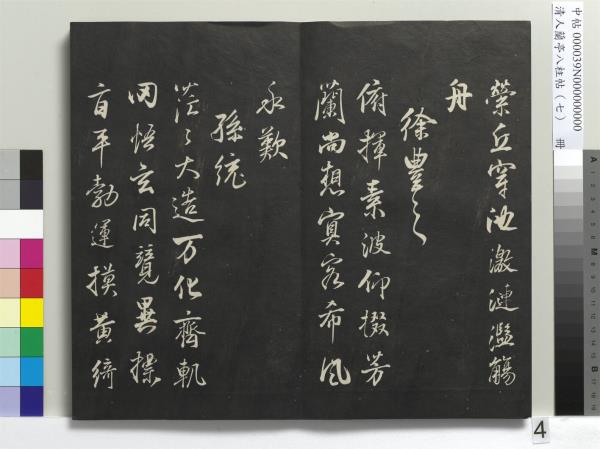 中帖 000039N000000000
清人蘭亭八柱帖（七） 冊
縈丘穿池激漣濫觴
舟
徐豐之
俯揮素波仰掇芳
蘭尚想冥客希風
永歎
孫統
茫〻大造万化齊軌
罔悟玄同競異摽
旨平勃運摸黃綺
4